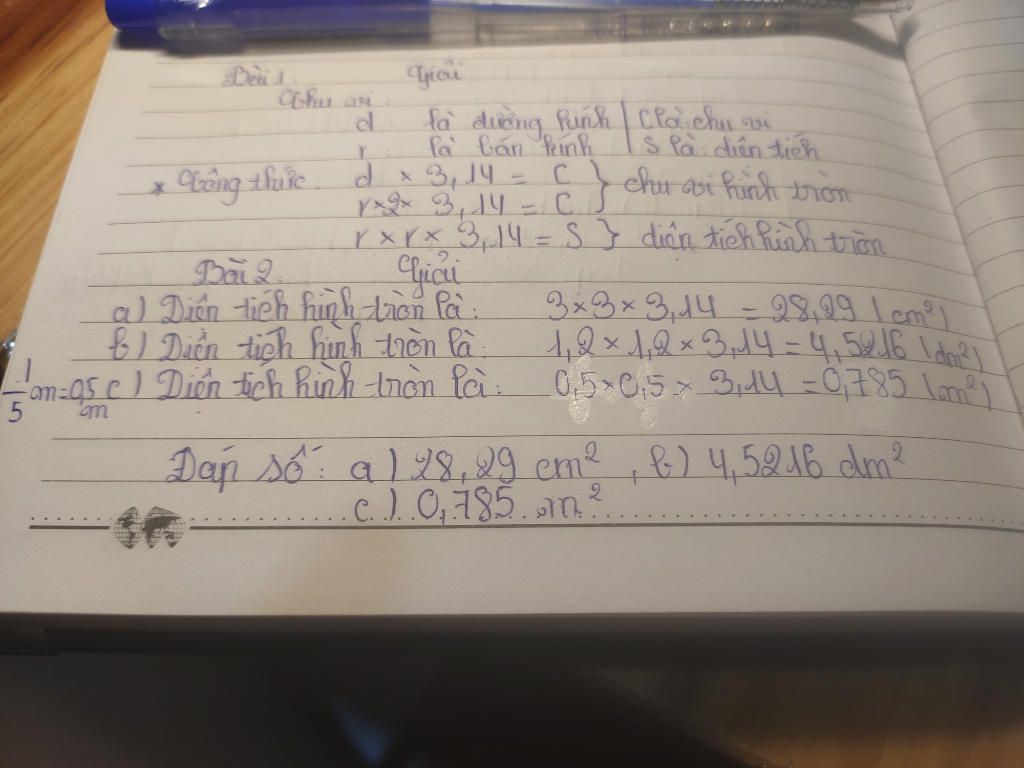 Bài 1: Giải
Chu vi:
d là đường kính | C là: chu vi
r là bán kính | S là: diện tích
* Công thức: d × 3,14 = C } chu vi hình tròn
r×2× 3,14 = C
r × r × 3,14 = S } diện tích hình tròn
Bài 2: Giải
a) Diện tích hình tròn là: 3×3×3,14 = 28,29 (cm²)
b) Diện tích hình tròn là: 1,2×1,2×3,14=4,5216 (dm²)
1/5 m=0,5 m c) Diện tích hình tròn là: 0,5×0,5×3,14=0,785 (m²)
Đáp số: a) 28,29 cm², b) 4,5216 dm²
c) 0,785 m²